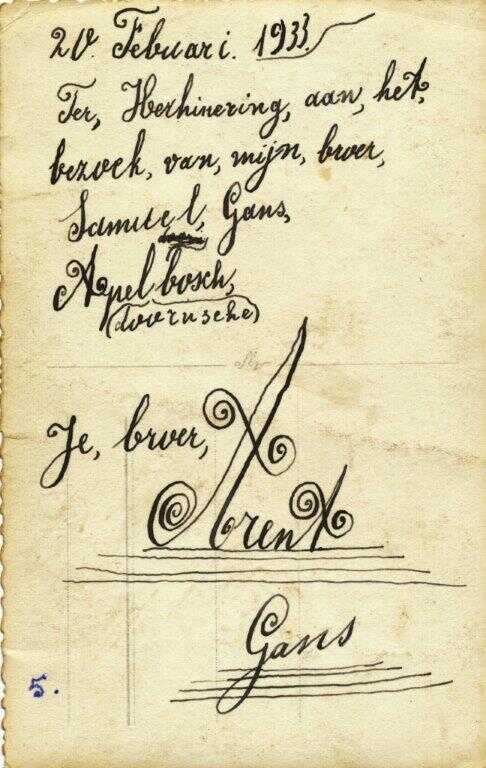 20. Febuari. 1933.
Ter, Herhinering, aan, het,
bezoek, van, mijn, broer,
Samuel, Gans,
Apelbosch,
(doornsche)
Je, broer,
Arend
Gans
5.